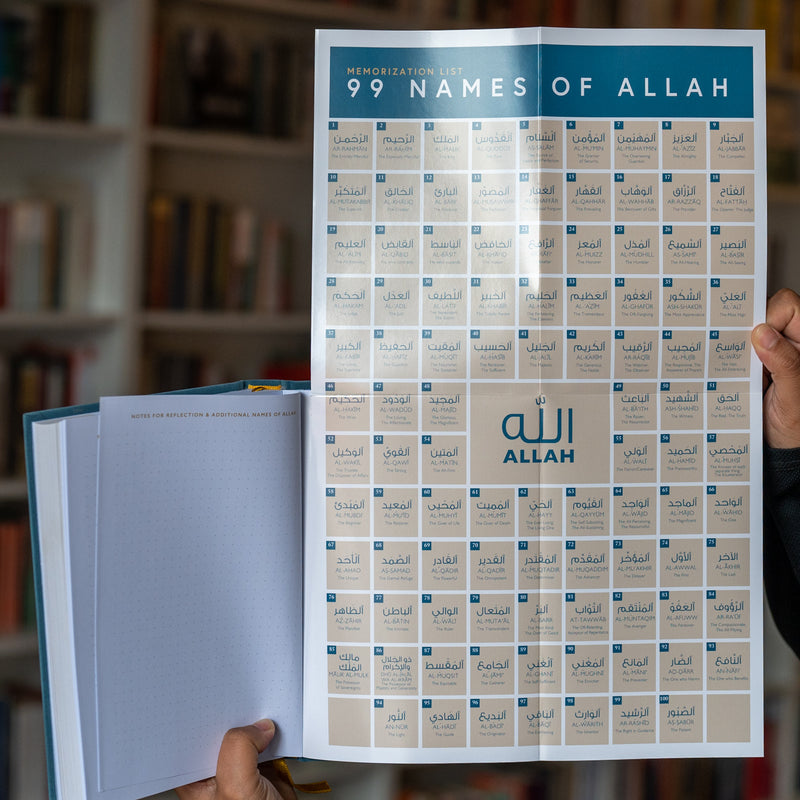 NOTES FOR REFLECTION & ADDITIONAL NAMES OF ALLAH
MEMORIZATION LIST
99 NAMES OF ALLAH
1
الرَّحْمٰن
AR-RAHMĀN
The Entirely Merciful
2
الرَّحِيم
AR-RAHĪM
The Especially Merciful
3
المَلِك
AL-MALIK
The King
4
القُدُّوس
AL-QUDDŪS
The Pure
5
السَّلَام
AS-SALĀM
6
المُؤْمِن
AL-MU'MIN
The Grantor
of Security
7
المُهَيْمِن
AL-MUHAYMIN
The Overseeing
Guardian
8
العَزِيز
AL-'AZĪZ
The Almighty
9
الجَبَّار
AL-JABBĀR
The Compeller
10
المُتَكَبِّر
AL-MUTAKABBIR
The Superior
11
الخَالِق
AL-KHĀLIQ
The Creator
12
البَارِئ
AL-BĀRI'
13
المُصَوِّر
AL-MUSAWWIR
14
الغَفَّار
AL-GHAFFĀR
15
القَهَّار
AL-QAHHĀR
The Prevailing
16
الوَهَّاب
AL-WAHHĀB
The Bestower of Gifts
17
الرَّزَّاق
AR-RAZZĀQ
The Provider
18
الفَتَّاح
AL-FATTĀH
The Opener, The Judge
19
العَلِيم
AL-'ALĪM
The All-Knowing
20
القَابِض
AL-QĀBID
21
البَاسِط
AL-BĀSIT
22
الخَافِض
AL-KHĀFID
23
الرَّافِع
24
المُعِزّ
AL-MUIZZ
The Honorer
25
المُذِلّ
AL-MUDHILL
The Humbler
26
السَّمِيع
AS-SAMĪ'
The All-Hearing
27
البَصِير
AL-BASĪR
The All-Seeing
28
الحَكَم
AL-HAKAM
The Judge
29
العَدْل
AL-'ADL
The Just
30
اللَّطِيف
AL-LATĪF
31
الخَبِير
AL-KHABĪR
32
الحَلِيم
AL-HALĪM
33
العَظِيم
AL-'AZĪM
The Tremendous
34
الغَفُور
AL-GHAFŪR
The Oft-Forgiving
35
الشَّكُور
ASH-SHAKŪR
The Most Appreciative
36
العَلِيّ
AL-'ALĪ
The Most High
37
الكَبِير
AL-KABĪR
38
الحَفِيظ
AL-HAFĪZ
The Guardian
39
المُقِيت
AL-MUQĪT
40
الحَسِيب
AL-HASĪB
41
الجَلِيل
AL-JALĪL
The Majestic
42
الكَرِيم
AL-KARĪM
The Generous,
The Noble
43
الرَّقِيب
AR-RAQĪB
The Watcher,
The Observer
44
المُجِيب
AL-MUJĪB
The Responsive, The
Answerer of Prayers
45
الوَاسِع
AL-WĀSI'
The Vast,
The All-Embracing
46
الحَكِيم
AL-HAKĪM
The Wise
47
الوَدُود
AL-WADŪD
The Loving,
The Affectionate
48
المَجِيد
AL-MAJĪD
The Glorious,
The Magnificent
الله
ALLAH
49
البَاعِث
AL-BĀ'ITH
The Raiser,
The Resurrector
50
الشَّهِيد
ASH-SHAHĪD
The Witness
51
الحَقّ
AL-HAQQ
The Real, The Truth
52
الوَكِيل
AL-WAKĪL
The Trustee,
The Disposer of Affairs
53
القَوِيّ
AL-QAWĪ
The Strong
54
المَتِين
AL-MATĪN
The All-Firm
55
الوَلِيّ
AL-WALĪ
56
الحَمِيد
AL-HAMĪD
The Praiseworthy
57
المُحْصِي
AL-MUHSĪ
58
المُبْدِئ
AL-MUBDI'
The Beginner
59
المُعِيد
AL-MU'ĪD
The Restorer
60
المُحْيِي
AL-MUHYĪ
The Giver of Life
61
المُمِيت
AL-MUMĪT
The Giver of Death
62
الحَيّ
AL-HAYY
The Ever Living,
The Living One
63
القَيُّوم
AL-QAYYŪM
The Self-Subsisting,
The All-Sustaining
64
الوَاجِد
AL-WĀJID
The All-Perceiving,
The Resourceful
65
المَاجِد
AL-MĀJID
The Magnificent
66
الوَاحِد
AL-WĀHID
The One
67
الأَحَد
AL-AHAD
The Unique
68
الصَّمَد
AS-SAMAD
The Eternal Refuge
69
القَادِر
AL-QĀDIR
The Powerful
70
القَدِير
AL-QADĪR
The Omnipotent
71
المُقْتَدِر
AL-MUQTADIR
The Determiner
72
المُقَدِّم
AL-MUQADDIM
The Advancer
73
المُؤَخِّر
AL-MU'AKHIR
The Delayer
74
الأَوَّل
AL-AWWAL
The First
75
الآخِر
AL-ĀKHIR
The Last
76
الظَّاهِر
AZ-ZĀHIR
The Manifest
77
البَاطِن
AL-BĀTIN
78
الوَالِي
AL-WĀLĪ
The Ruler
79
المُتَعَال
AL-MUTA'ĀL
The Transcendent
80
البَرّ
AL-BARR
The Most Kind,
The Doer of Good
81
التَّوَّاب
AT-TAWWĀB
The Oft-Relenting,
Acceptor of Repentance
82
المُنْتَقِم
AL-MUNTAQIM
The Avenger
83
العَفُوّ
AL-AFUWW
The Pardoner
84
الرَّؤُوف
AR-RA'ŪF
The Compassionate,
The All-Pitying
85
مَالِك
المُلْك
MĀLIK AL-MULK
The Possessor
of Sovereignty
86
ذُو الجَلَال
وَالإِكْرَام
DHŪ AL-JALĀL
WA AL-IKRĀM
The Possessor of
Majesty and Generosity
87
المُقْسِط
AL-MUQSIT
The Equitable
88
الجَامِع
AL-JĀMI'
The Gatherer
89
الغَنِيّ
AL-GHANĪ
The Self-Sufficient
90
المُغْنِي
AL-MUGHNĪ
The Enricher
91
المَانِع
AL-MĀNI'
The Preventer
92
الضَّار
AD-DĀRR
The One who Harms
93
النَّافِع
AN-NĀFI'
The One who Benefits
94
النُّور
AN-NŪR
The Light
95
الهَادِي
AL-HĀDĪ
The Guide
96
البَدِيع
AL-BADĪ'
The Originator
97
البَاقِي
AL-BĀQĪ
98
الوَارِث
AL-WĀRITH
The Inheritor
99
الرَّشِيد
AR-RASHĪD
The Right in Guidance
100
الصَّبُور
AS-SABŪR
The Patient